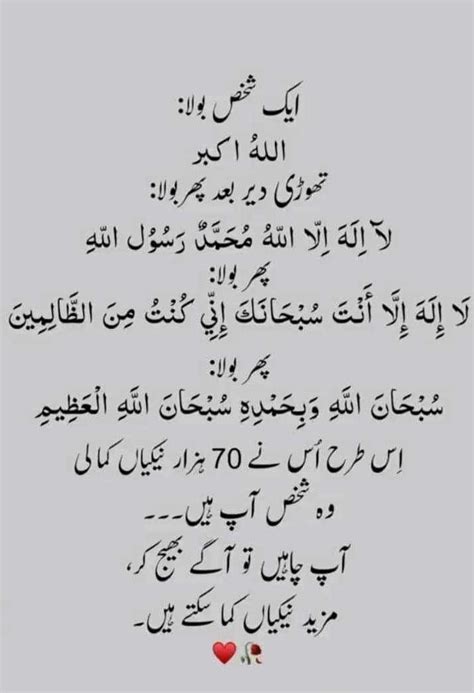 ایک شخص بولا:
اللهُ اکبر
تھوڑی دیر بعد پھر بولا:
لَآ اِلَهَ اِلَّا اللّٰهُ مُحَمَّدٌ رَسُوْلُ اللّٰهِ
پھر بولا:
لَا إِلَهَ إِلَّا أَنْتَ سُبْحَانَكَ إِنِّي كُنْتُ مِنَ الظَّالِمِينَ
پھر بولا:
سُبْحَانَ اللَّهِ وَبِحَمْدِهِ سُبْحَانَ اللَّهِ الْعَظِيمِ
اِس طرح اُس نے 70 ہزار نیکیاں کمالی
وہ شخص آپ ہیں۔۔۔
آپ چاہیں تو آگے بھیج کر،
مزید نیکیاں کما سکتے ہیں۔
♥️🥀